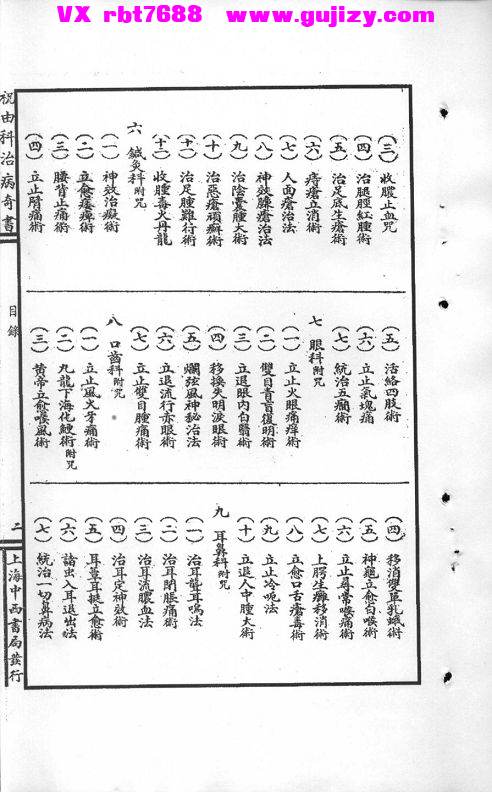 VX rbt7688 www.gujizy.com
(三)收膿止血咒
(四)治腿脛紅腫術
(五)治足底生瘡術
(六)痔瘡立消術
(七)人面瘡治法
(八)神效臁瘡治法
(九)治陰囊腫大術
(十)治惡瘡頑癬術
(十一)治足腫難行術
(十二)收腫毒火丹龍
六 鍼灸科附咒
(一)神效治癡術
(二)立愈痿痺術
(三)腰背止痛術
(四)立止臂痛術
(五)活絡四肢術
(六)立止氣塊痛
(七)統治五癇術
七 眼科附咒
(一)立止火眼痛痒術
(二)雙目青盲復明術
(三)立退眼内白翳術
(四)移換失明淚眼術
(五)爛弦風神秘治法
(六)立退流行赤眼術
(七)立止雙目腫痛術
八 口齒科附咒
(一)立止風火牙痛術
(二)九龍下海化鯁術附咒
(三)黄帝立愈喉風術
(四)移消雙單乳蛾術
(五)神龜立愈白喉術
(六)立止尋常喉痛術
(七)上腭生癰移消術
(八)立愈口舌瘡毒術
(九)立止冷呃法
(十)立退人中腫大術
九 耳鼻科附咒
(一)治耳聾耳鳴法
(二)治耳閉脹痛術
(三)治耳流膿血法
(四)治耳定神效術
(五)耳蕈耳挺立愈術
(六)諸虫入耳退出法
(七)統治一切鼻病法
祝由科治病奇書
目錄
二
上海中西書局發行